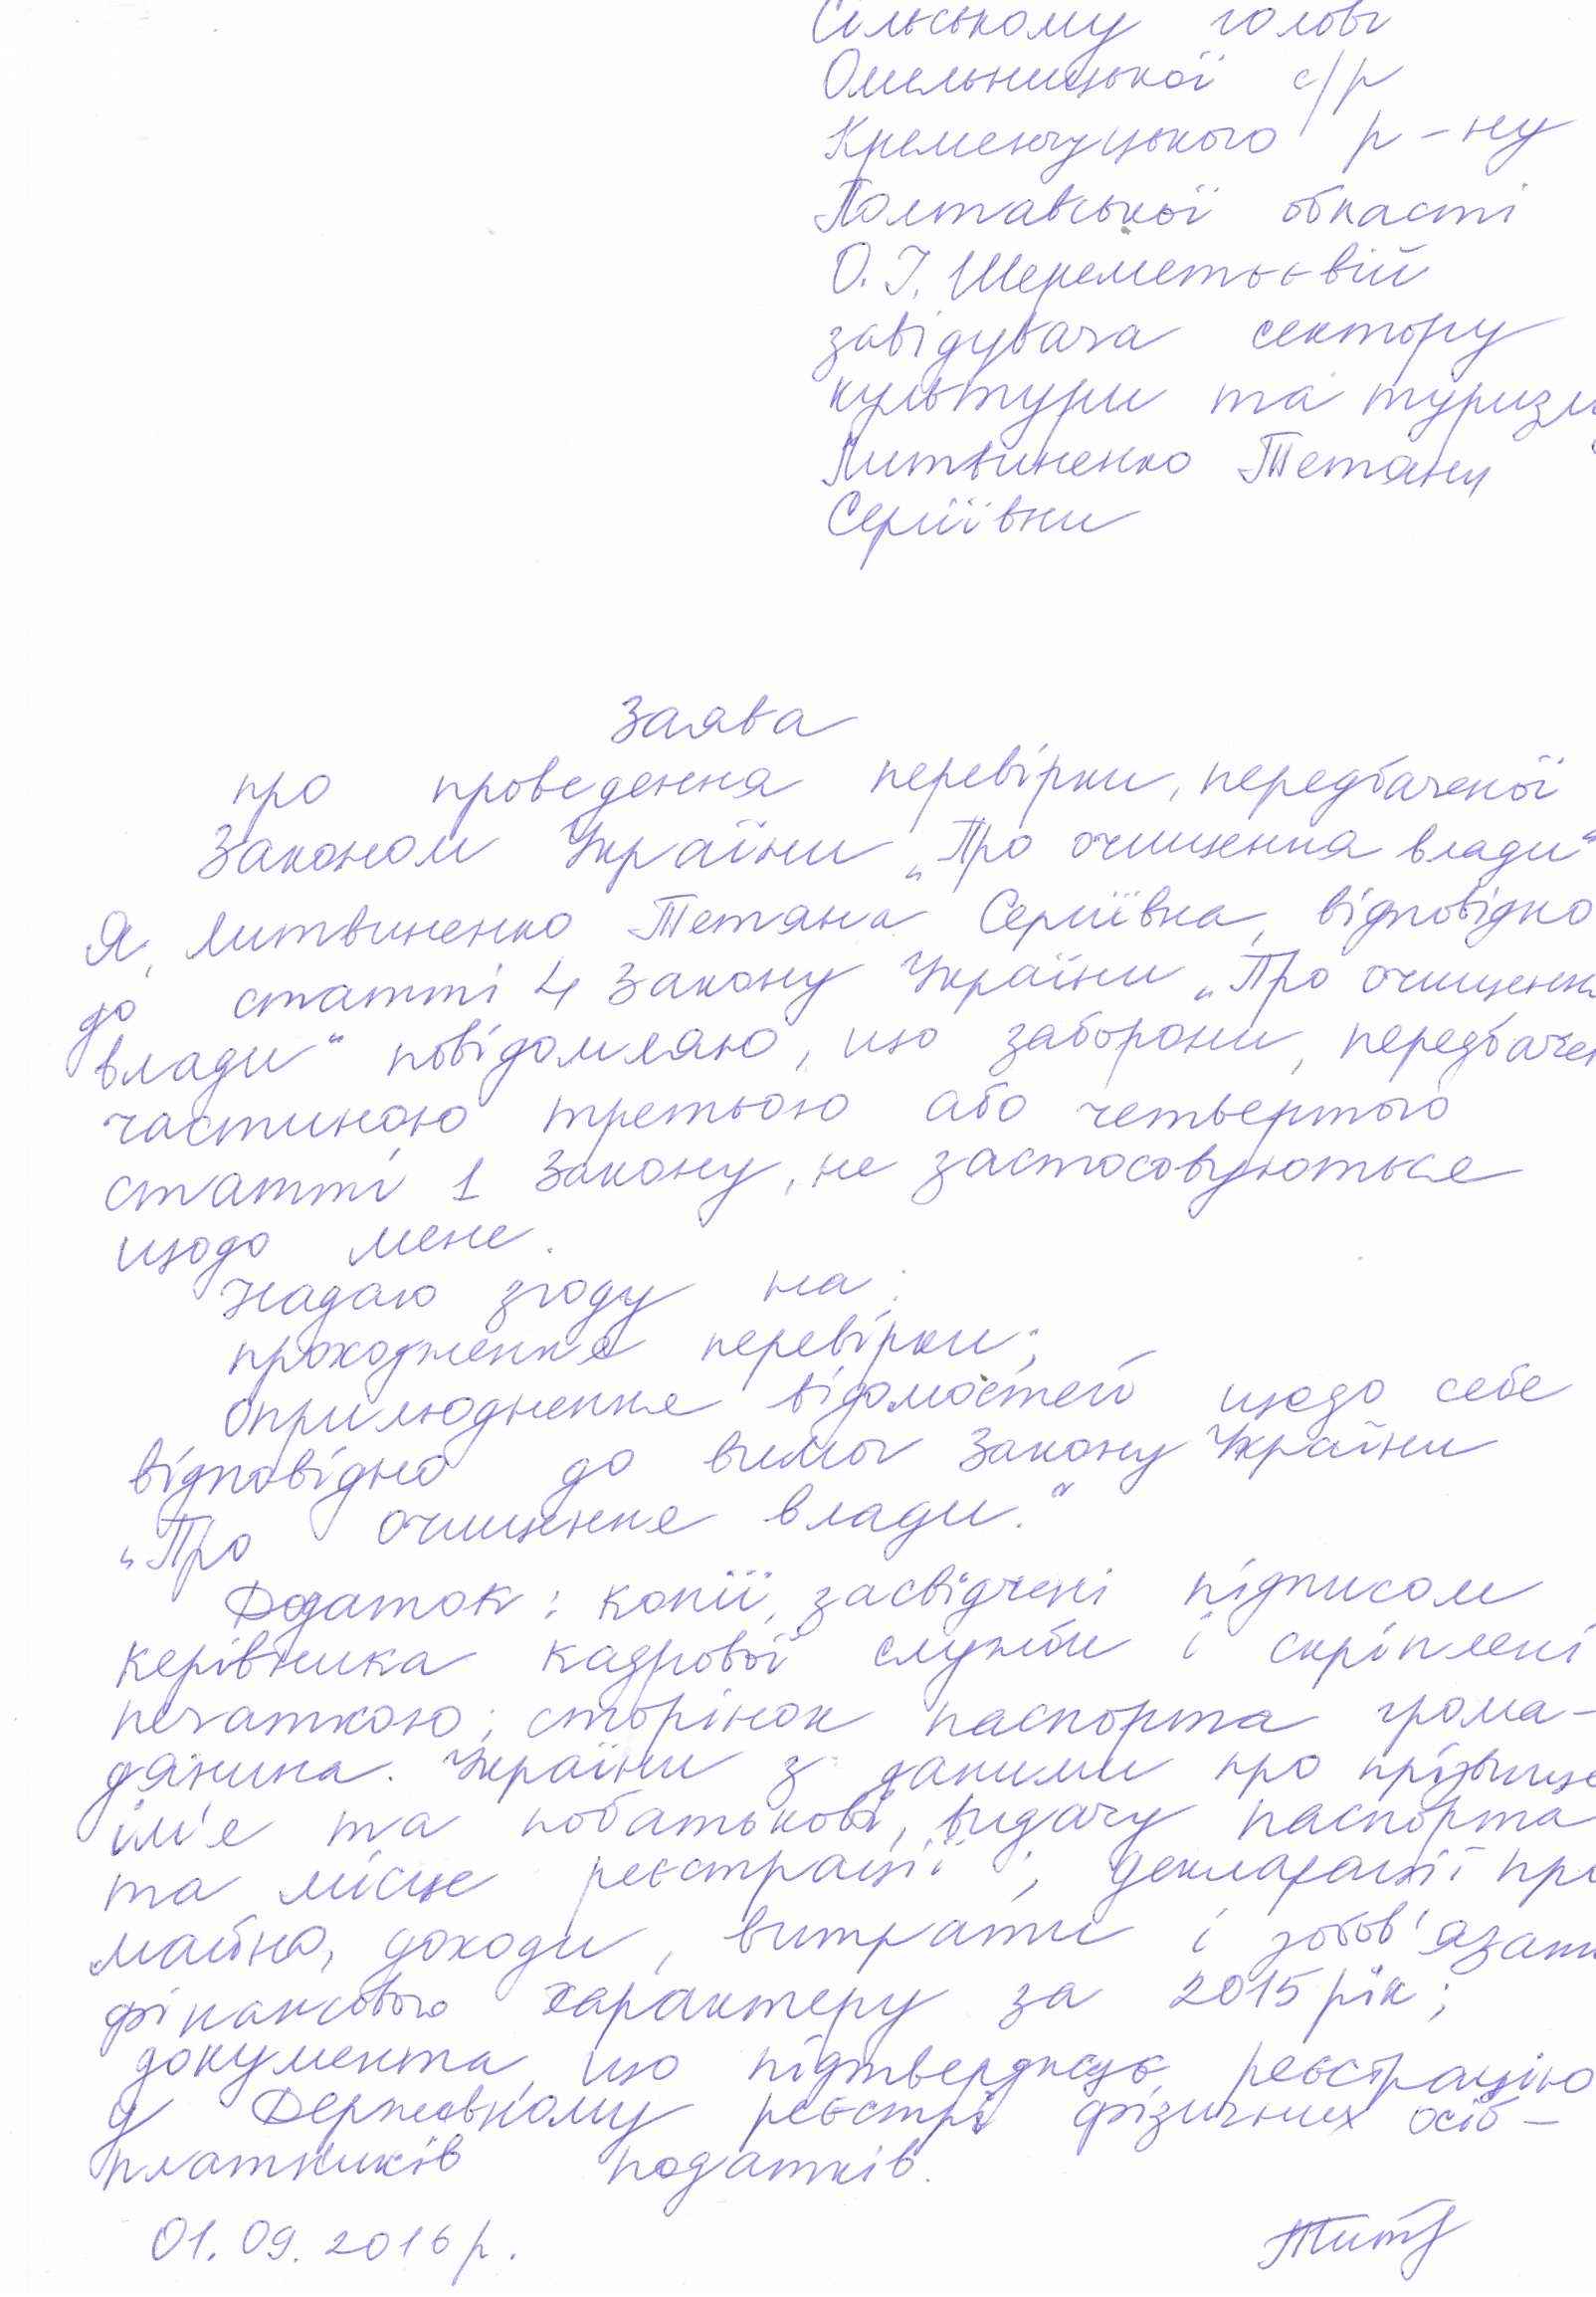 Сільському голові
Омельницької с/р
Кременчуцького р-ну
Полтавської області
О.І. Шереметьєвій
завідувача сектору
культури та туризм
Литвиненко Тетяни
Сергіївни
Заява
про проведення перевірки, передбаченої
Законом України „Про очищення влади“
Я, Литвиненко Тетяна Сергіївна, відповідно
до статті 4 Закону України „Про очищенн
влади“ повідомляю, що заборони, передбачен
частиною третьою або четвертою
статті 1 Закону, не застосовуються
щодо мене.
Надаю згоду на:
проходження перевірки;
оприлюднення відомостей щодо себе
відповідно до вимог Закону України
„Про очищення влади.“
Додаток: копії, засвідчені підписом
керівника кадрової служби і скріплені
печаткою; сторінок паспорта грома-
дянина. України з даними про прізвище
ім'я та побатькові, видачу паспорта
та місце реєстрації; декларації про
майно, доходи, витрати і зобов'язанн
фінансового характеру за 2015 рік;
документа, що підтверджує реєстрацію
у Державному реєстрі фізичних осіб-
платників податків.
01.09.2016 р.